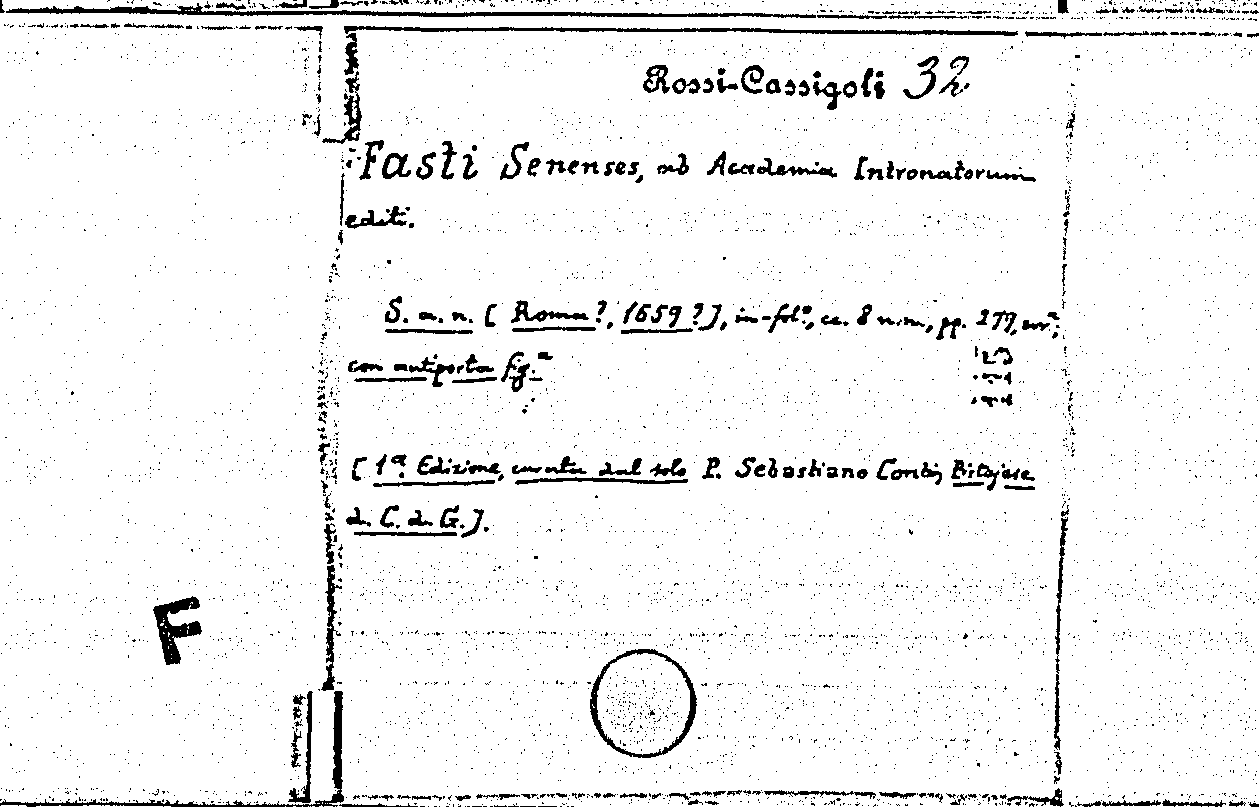 Rossi-Cassigoli 32
Fasti Senenses, ab Academia Intronatorum
editi.
S. a. n. [ Roma?, 1659?], in-fol°, cc. 8 n.n., pp. 277, err.ª;
con antiporta fig.ª
[ 1ª. Edizione, curata dal solo P. Sebastiano Conti,
d. C. d. G.].
F